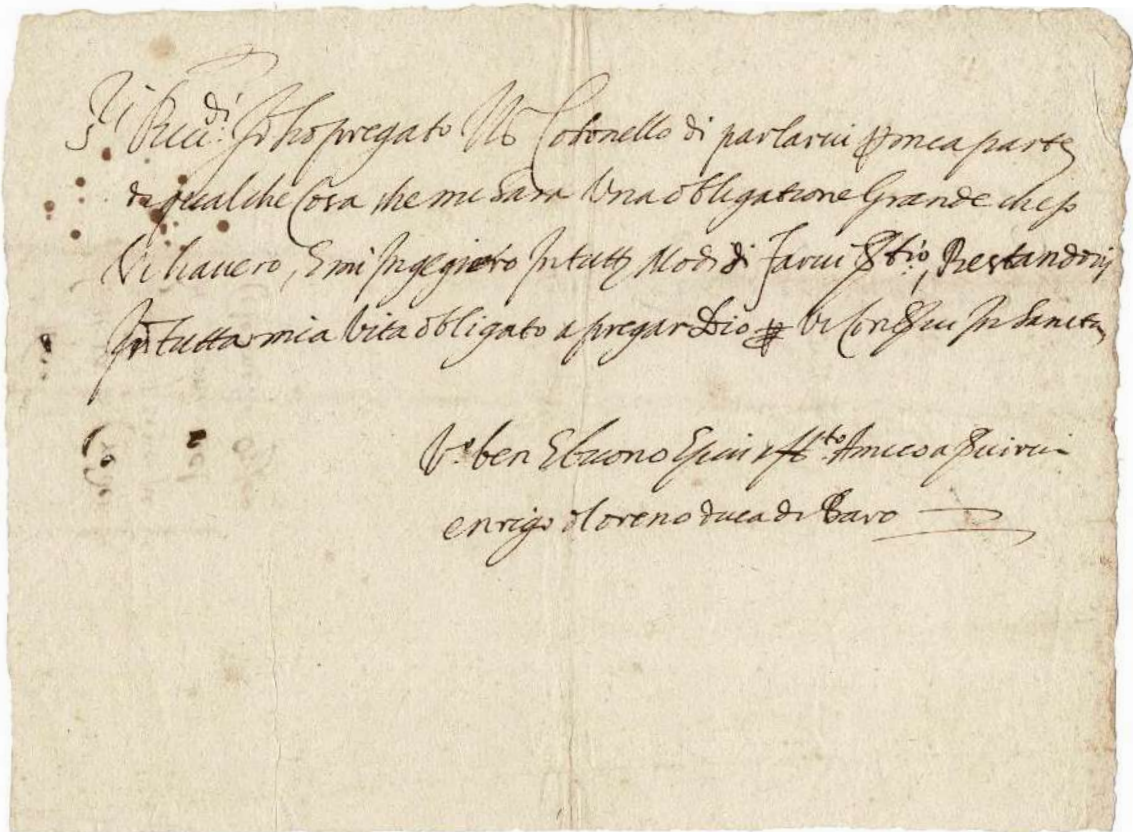 Io ho pregato Colonello di parlarvi mea parte
di qualche Cosa che mi Sara Una obligatione Grande che Jo
Vi havero, E mi Ingegnero In tutti Modi di Farvi Restandovi
In tutta mia Vita obligato a pregar Dio Vi In Sanita
ben E buono Amico a
enrigo di loreno duca di Baro